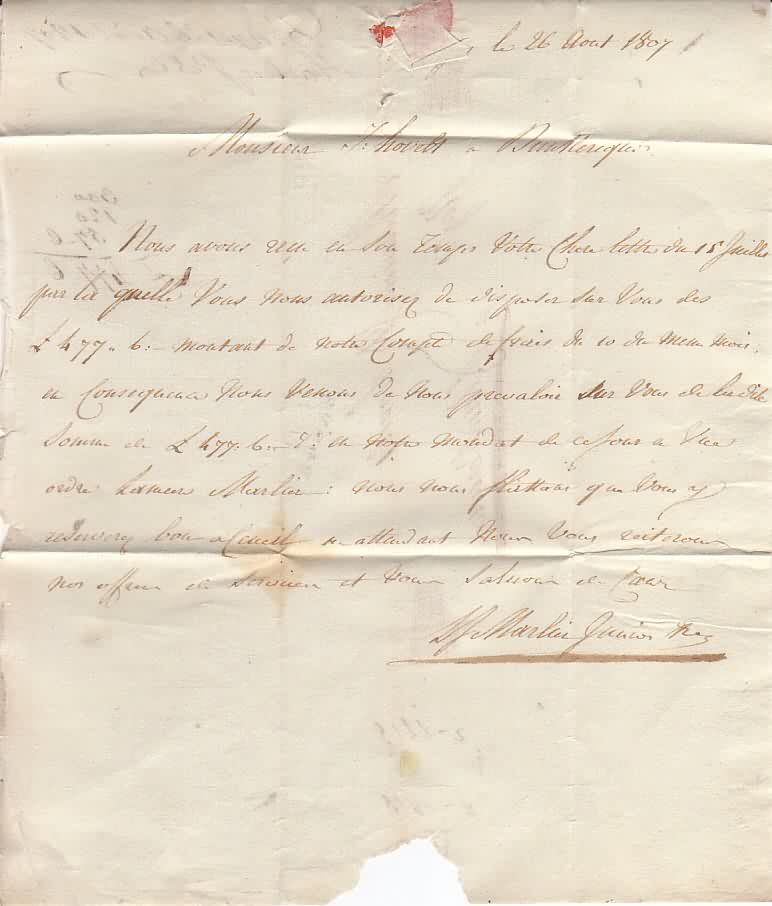 le 26 Aout 1807
Monsieur J: hovelt a Dunkerque
Nous avons recu en Son temps Votre Chere lettre du 15 Juillet
par la quelle Vous nous autorisez de disposer Sur Vous des
£ 477. 6: - montant de notre Compte de du 10 du meme mois.
en Consequence Nous Venons de Nous prevaloir Sur Vous de la dite
Somme de £ 477. 6. - en notre mandat de ce Jour a Vue
ordre Marlier: nous nous flattons que Vous y
reserverez bon acceuil en attendant Nous Vous reiterons
nos offres de Services et Vous Saluons de Coeur
Marlier Junior